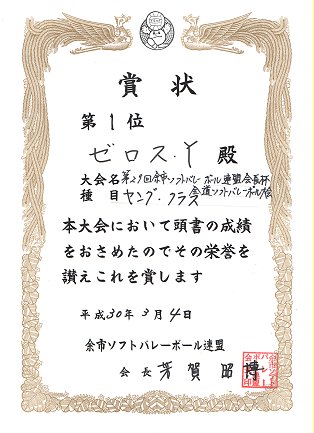 賞状
第1位
ゼロス・Y 殿
大会名 第29回余市ソフトバレーボール連盟会長杯
全道ソフトバレーボール大会
種目 ヤング・クラス
本大会において頭書の成績
をおさめたのでその栄誉を
讃えこれを賞します
平成30年3月4日
余市ソフトバレーボール連盟
会長 芳賀 昭博